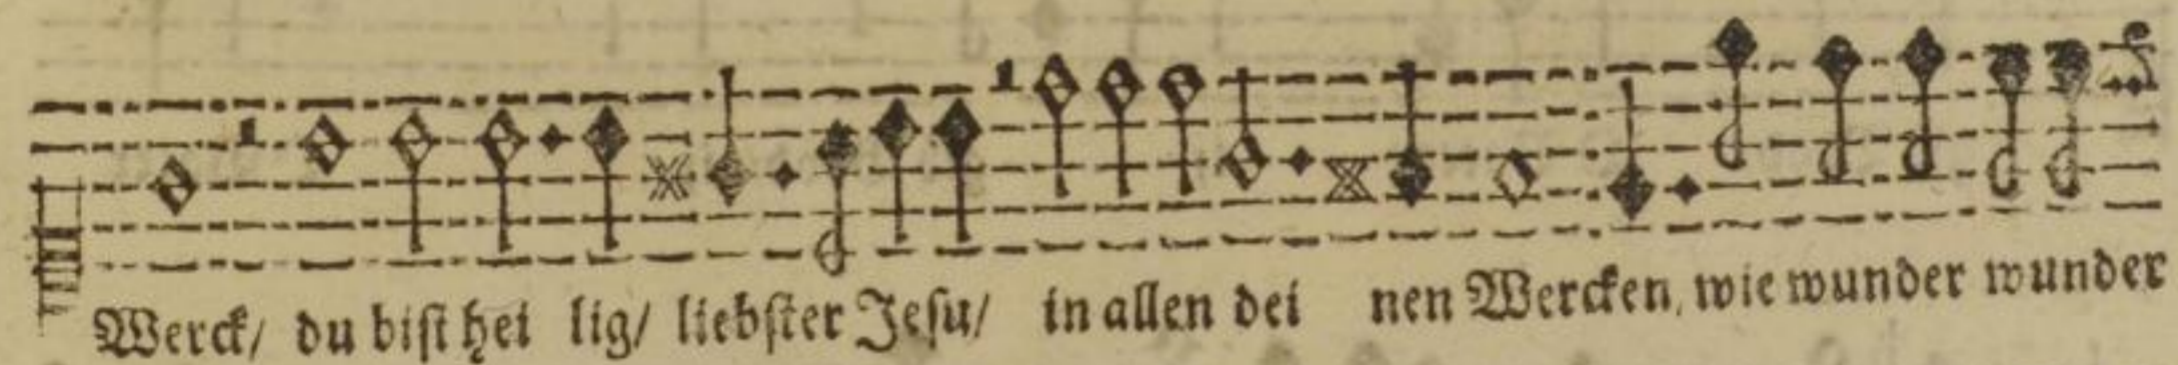 Werck/ du bist hei lig/ liebster Jesu/ in allen dei nen Wercken, wie wunder wunder